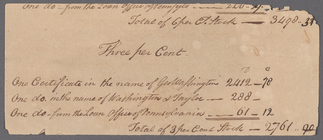 One do. from the Loan Office of
Total of 6 per Ct Stock — 3498.
Three per Cent.
One Certificate in the name of Go: Washington 2412 — 78
One do. in the name of Washington & Taylor — 288 —
One do. from the Loan Office of Pennsylvania — 61 — 12
Total of 3 per Cent Stock — 2761.. 90